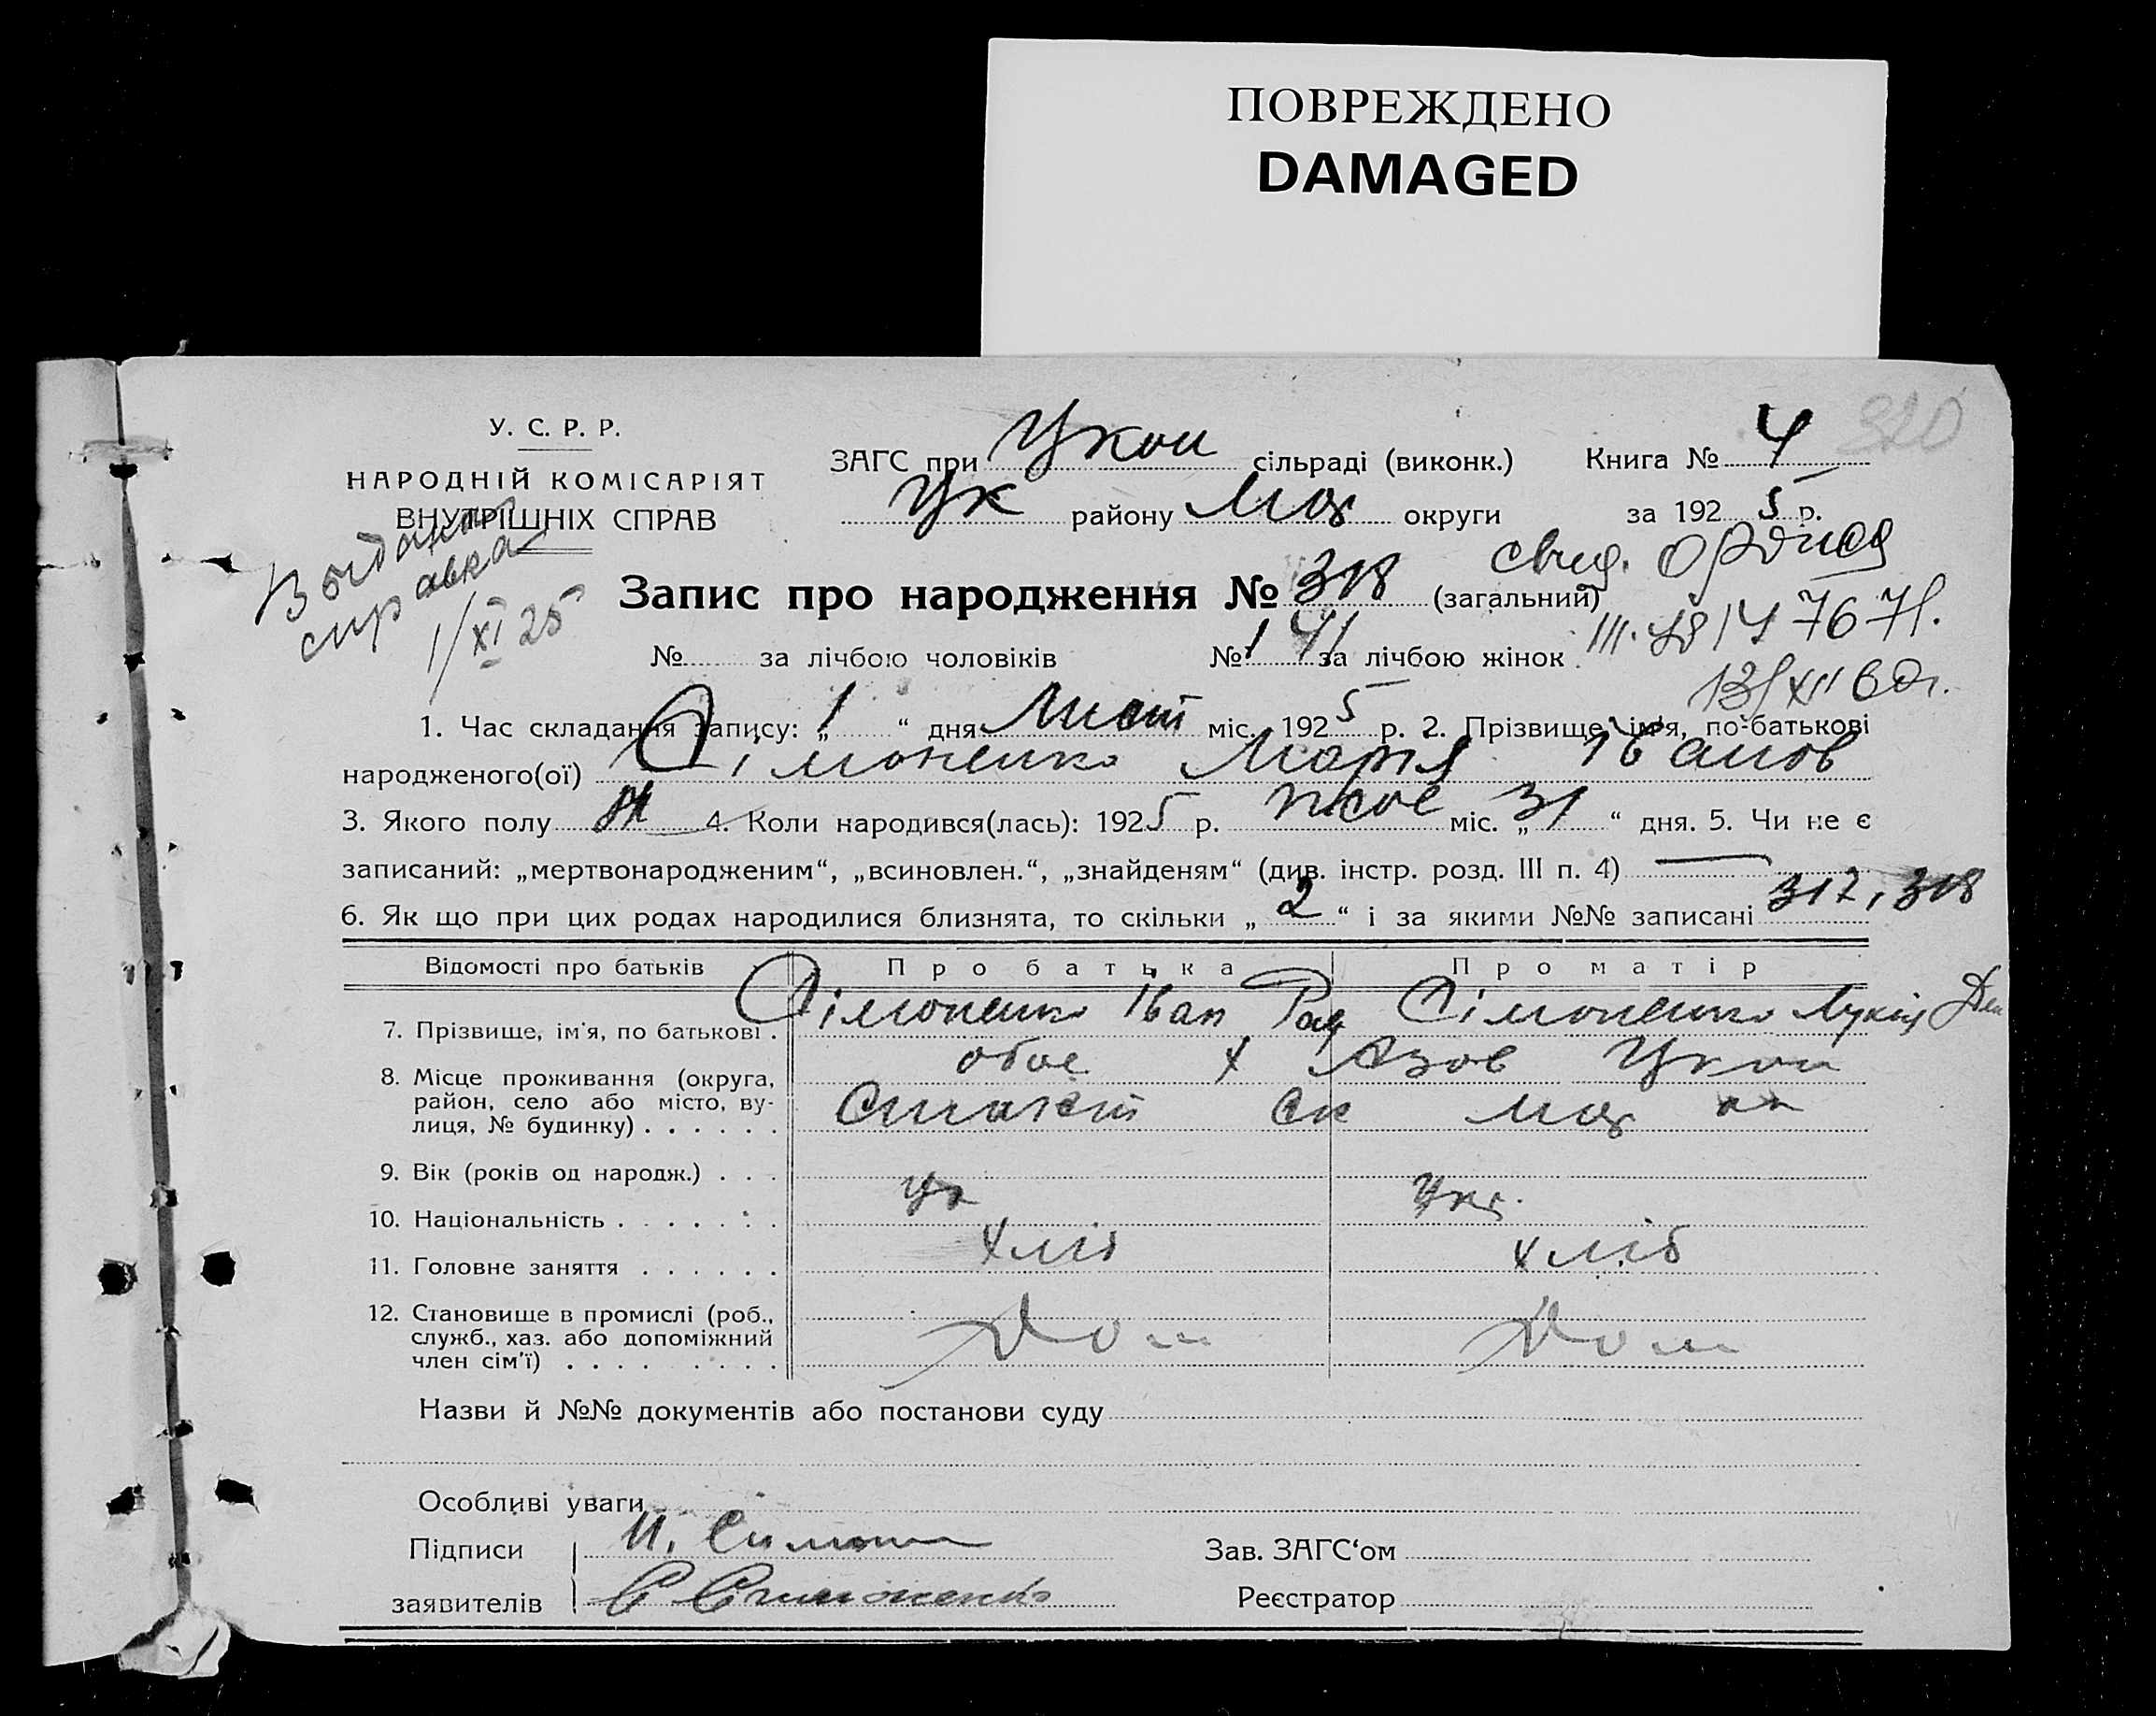 ПОВРЕЖДЕНО
DAMAGED
У. С. Р. Р.
НАРОДНІЙ КОМІСАРІЯТ
ВНУТРІШНІХ СПРАВ
ЗАГС при сільраді (виконк.) Книга № 4
району округи за 1925 р.
справка
1/XI 25
Запис про народження № 318 (загальний)
№ за лічбою чоловіків № 141 за лічбою жінок
1. Час складання запису: „ 1 “ дня Лист міс. 1925 р. 2. Прізвище, ім'я, по-батькові
народженого(ої) Сімоненко Марія Іванов
3. Якого полу 4. Коли народився(лась): 1925 р. міс. „ 31 “ дня. 5. Чи не є
записаний: „мертвонародженим“, „всиновлен.“, „знайденям“ (див. інстр. розд. III п. 4) —
6. Як що при цих родах народилися близнята, то скільки „ 2 “ і за якими №№ записані 317, 318
Відомості про батьків Про батька Про матір
7. Прізвище, ім'я, по батькові . Сімоненко Іван Сімоненко
8. Місце проживання (округа, обоє х
район, село або місто, ву-
лиця, № будинку) . . . . . .
9. Вік (років од народж.) . . .
10. Національність . . . . . . . Ук Укр.
11. Головне заняття . . . . . . хліб хліб
12. Становище в промислі (роб.,
служб., хаз. або допоміжний Дом Дом
член сім'ї) . . . . . . . .
Назви й №№ документів або постанови суду
Особливі уваги
Підписи И. Симон Зав. ЗАГС‘ом
заявителів С Симоненко Реєстратор